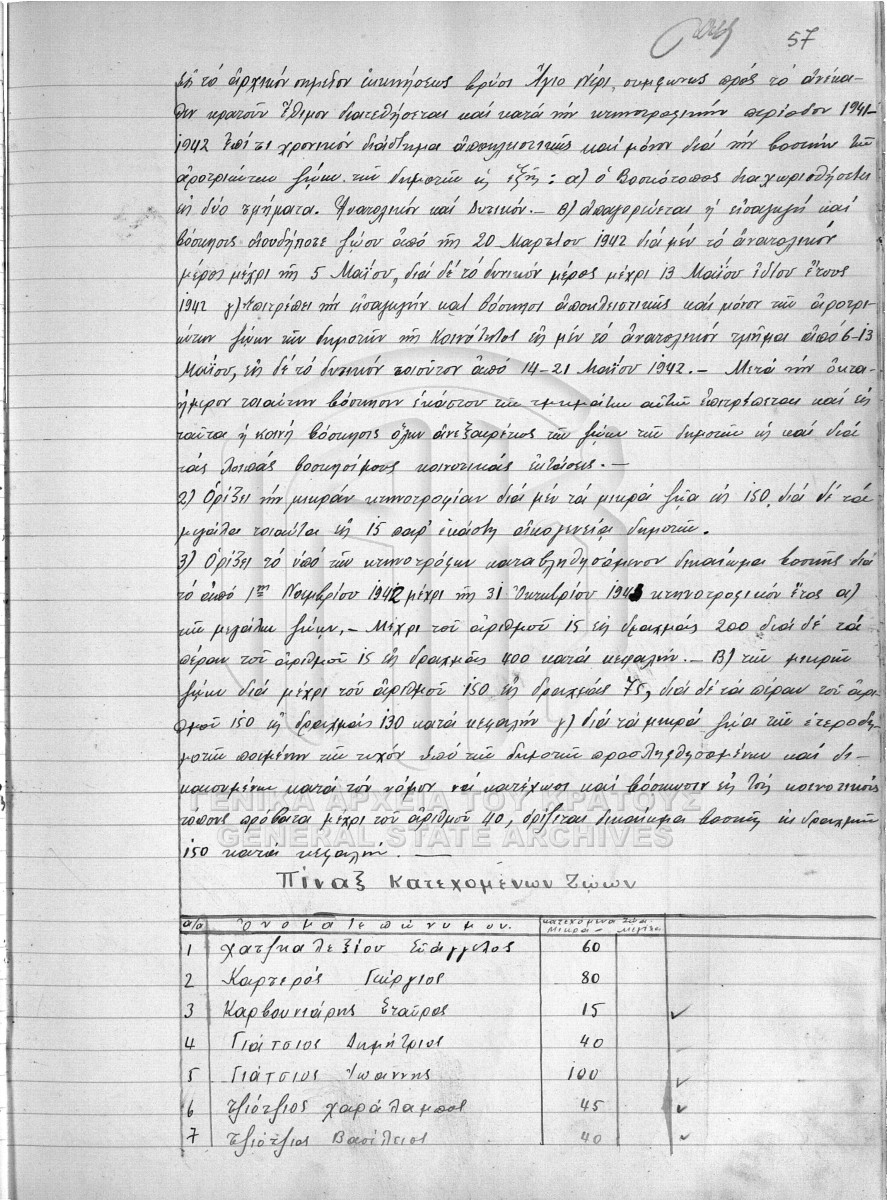 57
εἰς τὸ ἀρχικὸν σημεῖον ἐκκινήσεως βρύσι Ἅγιο Νέρι, συμφώνως πρὸς τὸ ἀνέκα-
θεν κρατοῦν ἔθιμον διατεθήσεται καὶ κατὰ τὴν κτηνοτροφικὴν περίοδον 1941-
1942 ἐπί τι χρονικὸν διάστημα ἀποκλειστικῶς καὶ μόνον διὰ τὴν βοσκὴν τῶν
ἀροτριώντων ζώων τῶν δημοτῶν ὡς ἑξῆς: α) ὁ Βοσκότοπος διαχωρισθήσεται
εἰς δύο τμήματα. Ἀνατολικὸν καὶ Δυτικόν.- Β) ἀπαγορεύεται ἡ εἰσαγωγὴ καὶ
βόσκησις οἱουδήποτε ζώου ἀπὸ τῆς 20 Μαρτίου 1942 διὰ μὲν τὸ ἀνατολικὸν
μέρος μέχρι τῆς 5 Μαΐου, διὰ δὲ τὸ δυτικὸν μέρος μέχρι 13 Μαΐου ἰδίου ἔτους
1942 γ) Ἐπιτρέπει τὴν εἰσαγωγὴν καὶ βόσκησι ἀποκλειστικῶς καὶ μόνον τῶν ἀροτρι-
ώντων ζώων τῶν δημοτῶν τῆς Κοινότητος εἰς μὲν τὸ ἀνατολικὸν τμῆμα ἀπὸ 6-13
Μαΐου, εἰς δὲ τὸ δυτικὸν τοιοῦτον ἀπὸ 14-21 Μαΐου 1942.- Μετὰ τὴν ὀκτα-
ήμερον τοιαύτην βόσκησιν ἑκάστου τῶν τμημάτων αὐτῶν ἐπιτρέπεται καὶ εἰς
ταῦτα ἡ κοινὴ βόσκησις ὅλων ἀνεξαιρέτως τῶν ζώων τῶν δημοτῶν ὡς καὶ διὰ
τὰς λοιπὰς βοσκησίμους κοινοτικὰς ἐκτάσεις.-
2) Ὁρίζει τὴν μικρὰν κτηνοτροφίαν διὰ μὲν τὰ μικρὰ ζῶα εἰς 150, διὰ δὲ τὰ
μεγάλα τοιαῦτα εἰς 15 παρ' ἑκάστῃ οἰκογενείᾳ δημοτῶν.
3) Ὁρίζει τὸ ὑπὸ τῶν κτηνοτρόφων καταβληθησόμενον δικαίωμα βοσκῆς διὰ
τὸ ἀπὸ 1ης Νοεμβρίου 1942 μέχρι τῆς 31 Ὀκτωβρίου 1943 κτηνοτροφικὸν ἔτος α)
τῶν μεγάλων ζώων.- Μέχρι τοῦ ἀριθμοῦ 15 εἰς δραχμὰς 200 διὰ δὲ τὰ
πέραν τοῦ ἀριθμοῦ 15 εἰς δραχμὰς 400 κατὰ κεφαλήν.- Β) τῶν μικρῶν
ζώων διὰ μέχρι τοῦ ἀριθμοῦ 150 εἰς δραχμὰς 75, διὰ δὲ τὰ πέραν τοῦ ἀρι-
θμοῦ 150 εἰς δραχμὰς 130 κατὰ κεφαλὴν γ) διὰ τὰ μικρὰ ζῶα τῶν ἑτεροδη-
μοτῶν ποιμένων τῶν τυχὸν ὑπὸ τῶν δημοτῶν προσληφθησομένων καὶ δι-
καιουμένων κατὰ τὸν νόμον νὰ κατέχωσι καὶ βόσκωσιν εἰς τοὺς κοινοτικοὺς
τόπους πρόβατα μέχρι τοῦ ἀριθμοῦ 40, ὁρίζεται δικαίωμα βοσκῆς εἰς δραχμὰς
150 κατὰ κεφαλήν.
ΓΕΝΙΚΑ ΑΡΧΕΙΑ ΤΟΥ ΚΡΑΤΟΥΣ
GENERAL STATE ARCHIVES
Πίναξ Κατεχομένων Ζώων
α/α Ὀνοματεπώνυμον. κατεχόμενα Ζῶα
Μικρὰ - Μεγάλα
1 Χατζηαλεξίου Εὐάγγελος 60
2 Καρτερός Γεώργιος 80
3 Καρβουνιάρης Σταῦρος 15 ✓
4 Γιάτσιος Δημήτριος 40
5 Γιάτσιος Ἰωάννης 100 ✓
6 Τζιότζιος Χαράλαμπος 45 ✓
7 Τζιότζιος Βασίλειος 40 ✓